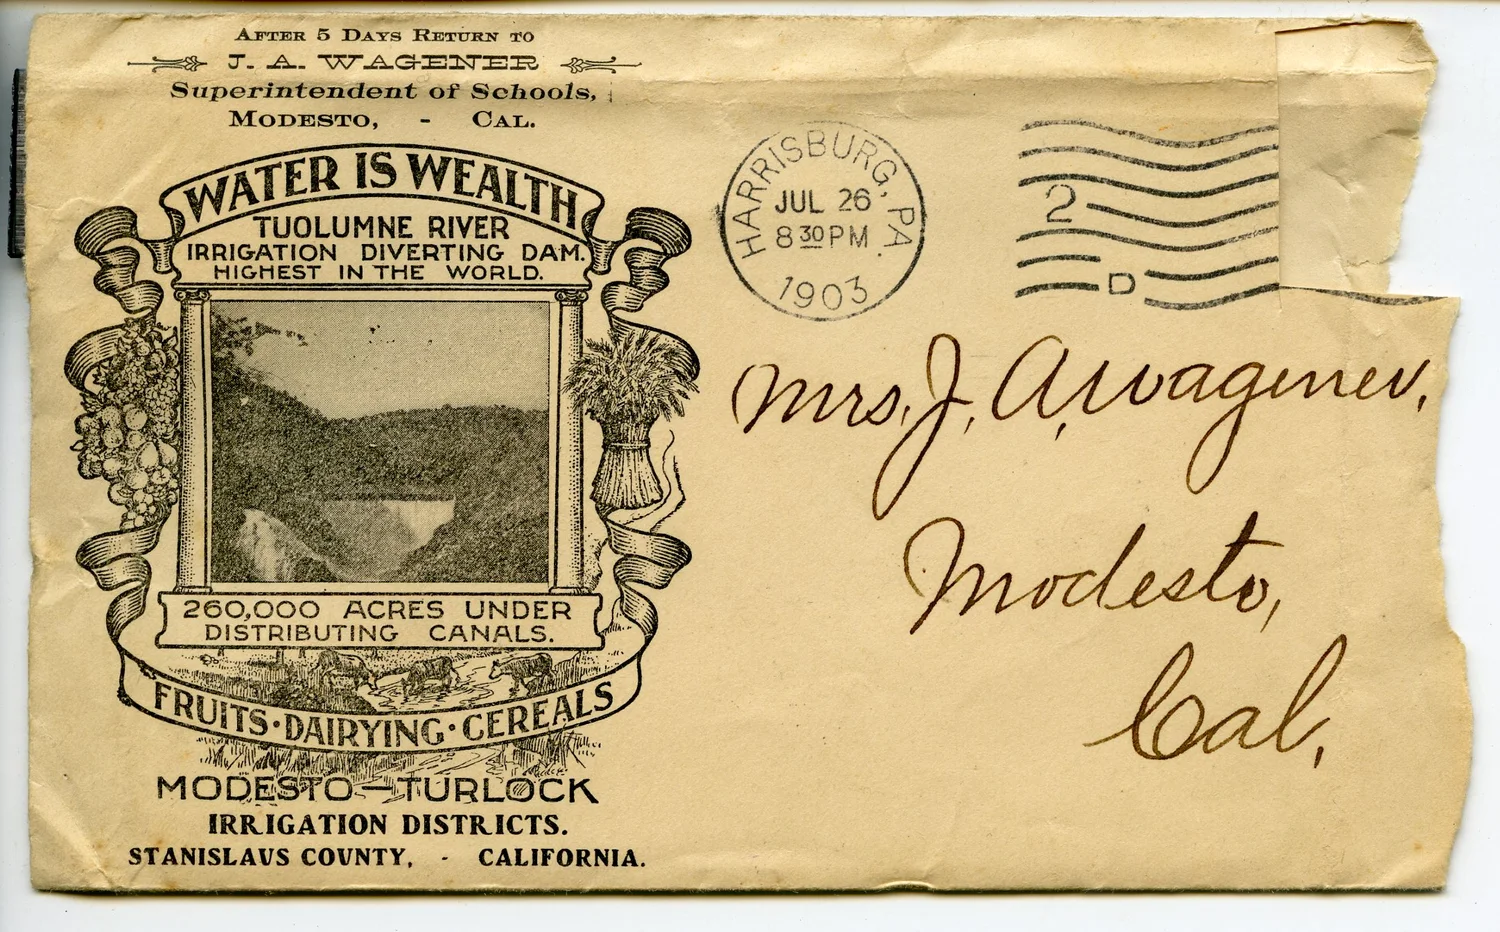 AFTER 5 DAYS RETURN TO
J. A. WAGENER
Superintendent of Schools,
MODESTO, - CAL.
WATER IS WEALTH
TUOLUMNE RIVER
IRRIGATION DIVERTING DAM.
HIGHEST IN THE WORLD.
260,000 ACRES UNDER
DISTRIBUTING CANALS.
FRUITS · DAIRYING · CEREALS
MODESTO—TURLOCK
IRRIGATION DISTRICTS.
STANISLAUS COUNTY, - CALIFORNIA.
HARRISBURG, PA.
JUL 26
8 30 PM
1903
2
D
Mrs. J. A. Wagener,
Modesto,
Cal.